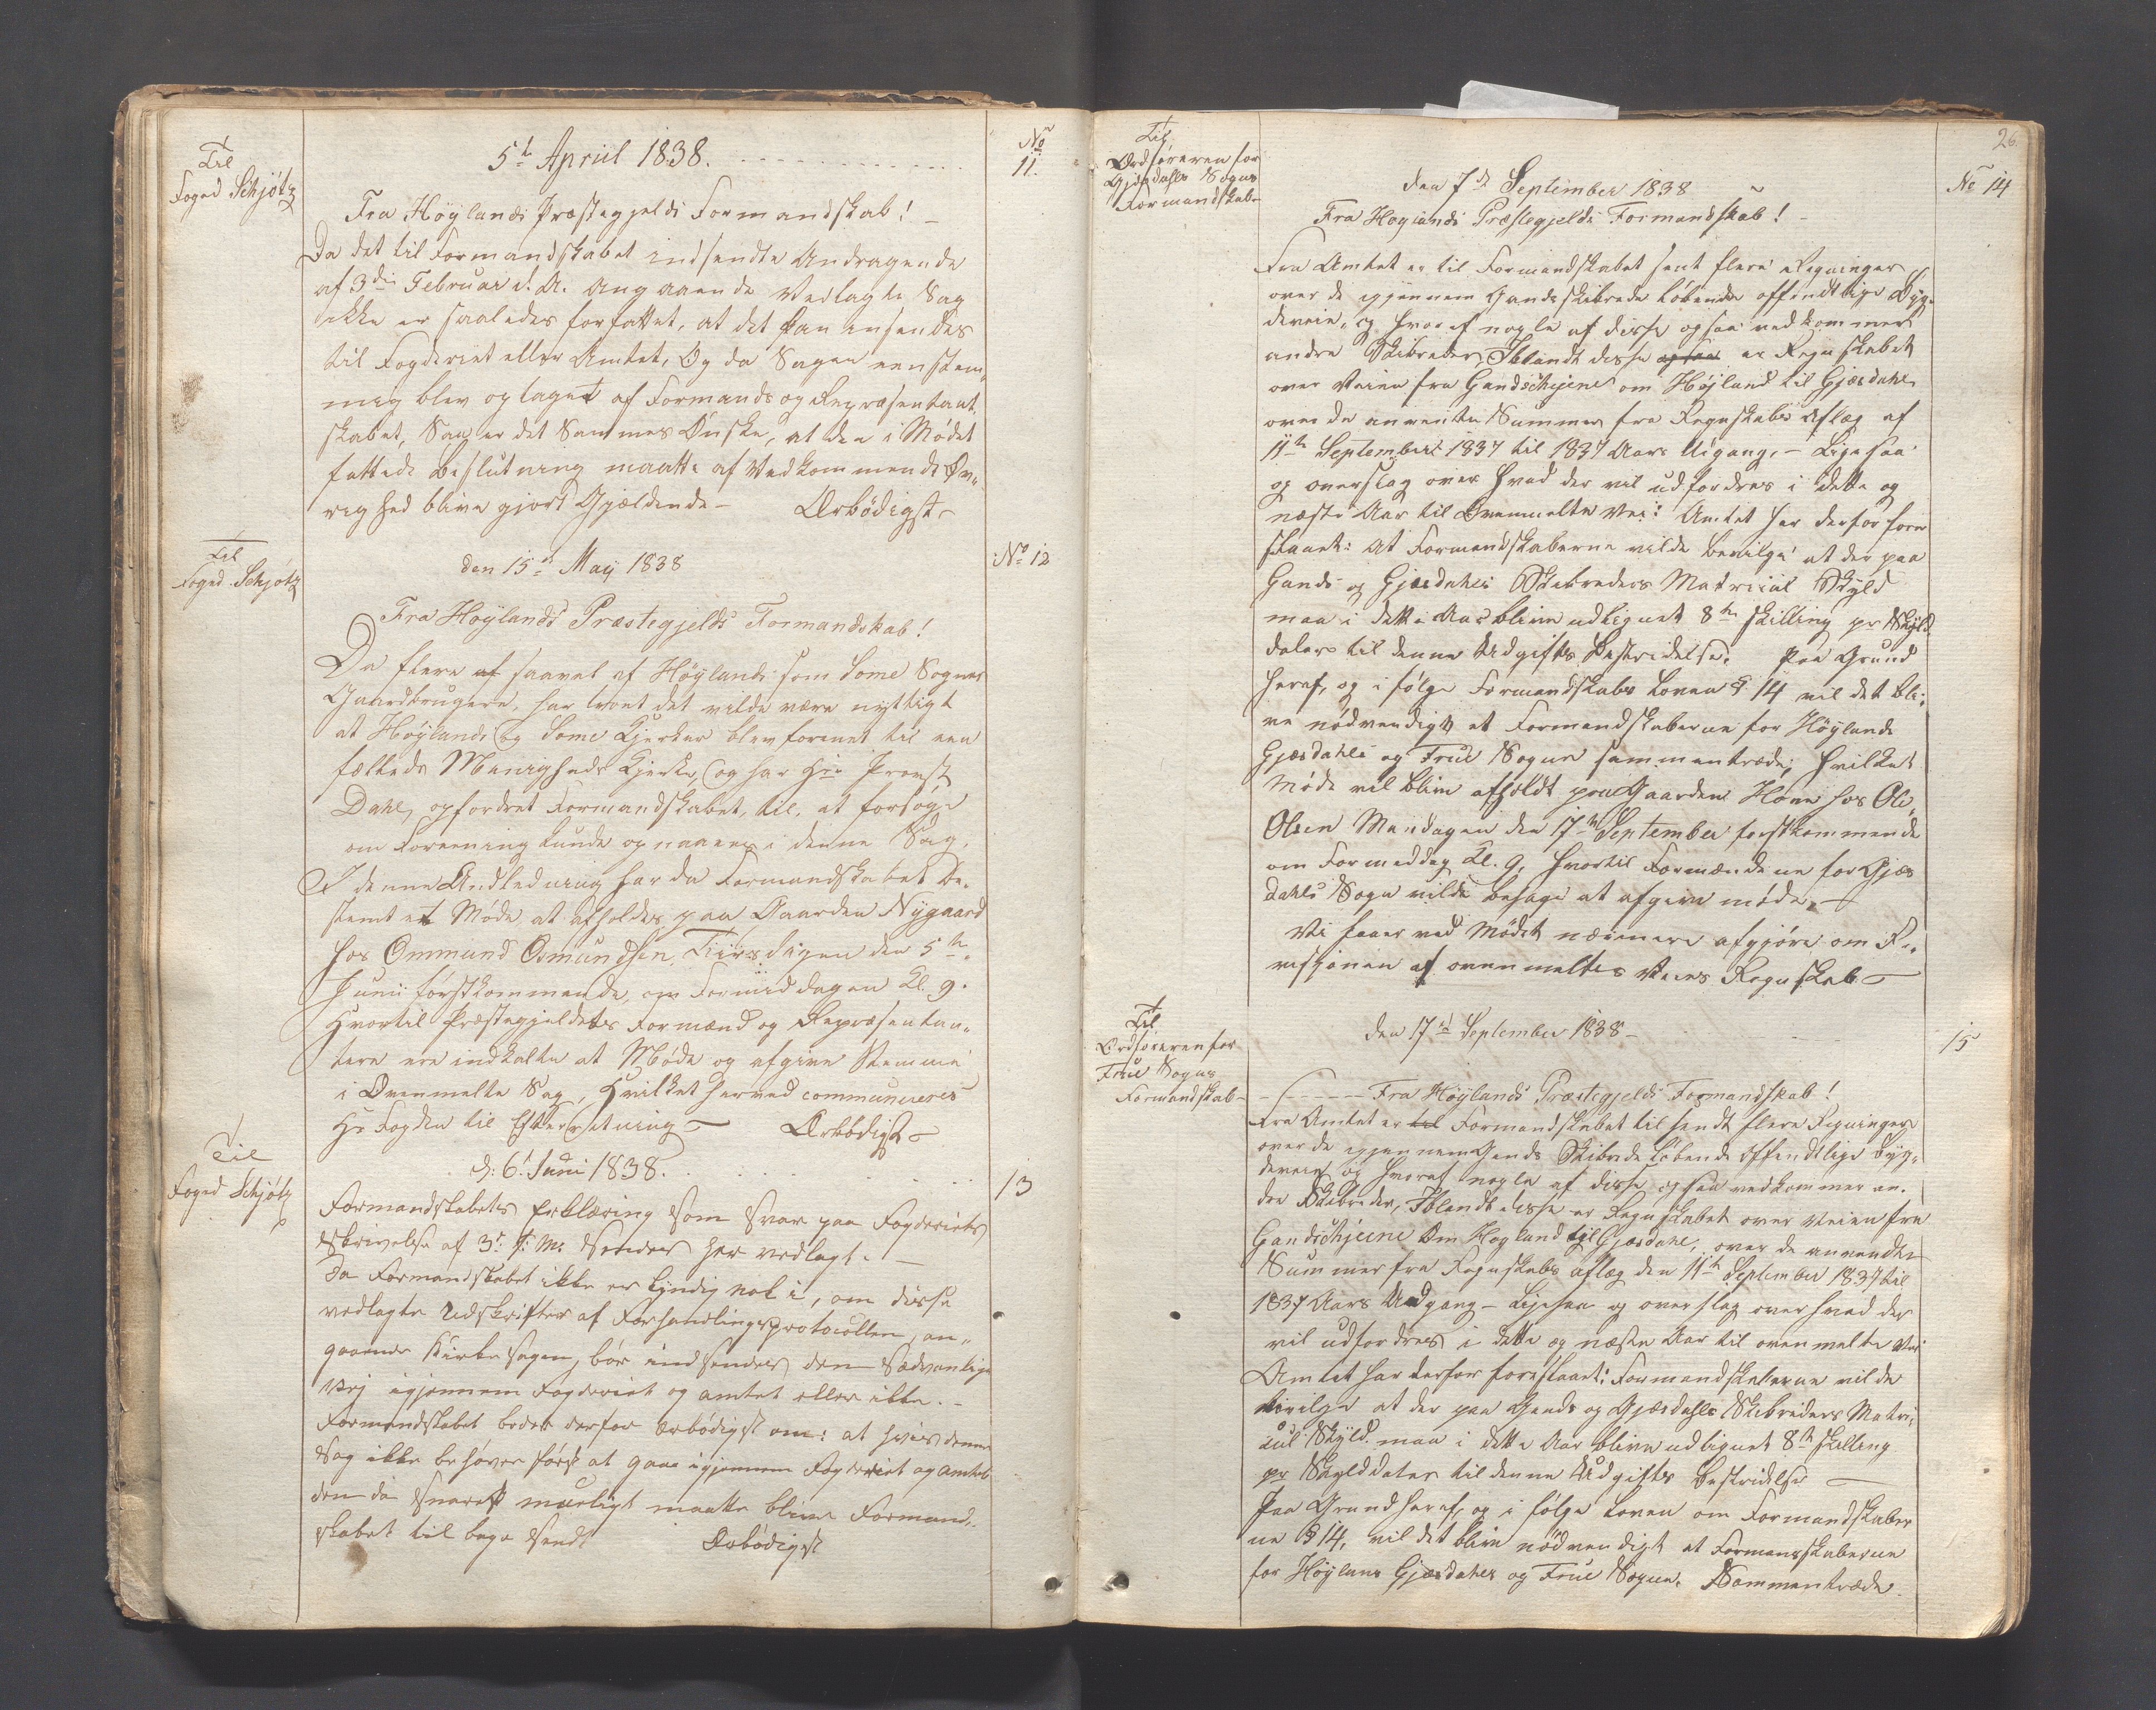 Til
Foged Schjötz
5te April 1838.
No 11.
Fra Höylands Præstegjelds Formandskab! –
Da det til Formandskabet indsendte Andragende
af 3die Februar d. A. angaaende Vedlagte Sag
ikke er saaledes forfattet, at det kan insendes
til Fogderiet eller Amtet, Og da Sagen eenstem„
mig blev optaget af Formands og Repræsentant,
skabet, Saa er det Sammes Önske, at den i Mödet
fattede Beslutning maatte af Vedkommende Öv„
righed blive gjort Gjældende – Ærbödigst
Til
Foged Schjötz
den 15de Maij 1838
No 12
Fra Höylands Præstegjelds Formandskab!
Da flere af saavel af Höylands som Some Sognes
Gaardbrugere, har troet det vilde være nyttigt
at Höylands og Some Kjerker blev forenet til een
fælleds Menigheds Kjerke, og har Hrr Provst
Dahl, opfordret Formandskabet, til, at forsöge
om Foreening kunde opnaaes i denne Sag,
I denne Andledning har da Formandskabet be„
stemt et Möde at afholdes paa Gaarden Nygaard
hos Ommund Osmundsen, Tiirsdagen den 5te
Junii förstkommende, om Formiddagen Kl. 9.
Hvortil Præstegjeldets Formænd og Repræsentan„
tere ere indkalte at Möde og afgive Stemme
i Ovenmelte Sag, Hvilket herved communiceres
Hr Fogden til Efterretning – Ærbödigst –
Til
Foged Schjötz
d: 6t Juni 1838.
13
Formandskabets Erklæring som Svar paa Fogderiets
Skrivelse af 3d f: M: Sendes her vedlagt. –
Da Formandskabet ikke er kyndig nok i, om disse
vedlagte Udskrifter af Forhandlingsprotocollen, an„
gaaende Kirke sagen, bör indsendes den Sædvanlige
Vej igjennem Fogderiet og Amtet eller ikke. –
Formandskabet beder derfor Ærbödigst om: at hvis denne
Sag ikke behöver först at gaae igjennem Fogderiet og Amtet
den da Snarest mueligt maatte blive Formand„
skabet til bage Sendt Ærbödigst
26
Til
Ordföreren for
Gjesdahls Sogns
Formandskab –
den 7de September 1838
No 14
Fra Höylands Præstegjelds Formandskab! –
Fra Amtet er til Formandskabet sent flere Regninger
over de igjennem Gands skibrede löbende offendtlige Byg„
deveie, og hvoraf nogle af disse ogsaa vedkommer
andre Skibreder, Iblandt disse ogsaa er Regnskabet
over Veien fra Gandschjene om Höyland til Gjesdahl,
over de anvendte Summer fra Regnskabs Aflæg af
11te September 1837 til 1837 Aars Udgang, – Ligesaa
og overslag over hvad der vil udfordres i dette og
næste Aar til Ovenmelte Vei: Amtet har derfor fore
slaaet: At Formandskaberne vilde bevilge at der paa
Gands og Gjesdahls Skibreders Matricul Skyld
maa i dette Aar blive udlignet 8te Skilling pr Skyld
daler til denne Udgifts Bestridelse. Paa Grund
heraf, og i fölge Formandskabs Loven § 14 vil det bli„
ve nödvendigt at Formandskaberne for Höylands
Gjesdahls og Frue Sogne sammentræde, hvilket
Möde vil blive afholdt paa Gaarden Hove hos Ole
Olsen Mandagen den 17de September forstkommende
om Formeddag Kl. 9, hvortil Formændene for Gjes
dahls Sogn vilde behage at afgive möde, –
Vi faaer ved Mödet nærmere afgjöre om Re„
visjonen af ovenmeltes Veies Regnskab –
Til
Ordföreren for
Frue Sogns
Formandskab –
den 17de September 1838 –
15
Fra Höylands Præstegjelds Formandskab!
Fra Amtet er til Formandskabet til sendt flere Regninger
over de igjennem Gands Skibrede löbende offendtlige Byg„
deveie, og hvoraf nogle af disse ogsaa vedkommer an„
dre Skibreder, Iblandt disse er Regnskabet over Veien fra
Gandschjene Om Hoyland til Gjesdahl, over de anvendte
Summer fra Regnskabs aflæg den 11te September 1837 til
1837 Aars Udgang – Ligesaa og overslag over hvad der
vil udfordres i dette og næste Aar til ovenmelte Vei
Amtet har derfor foreslaaet: Formandskaberne vilde
bevilge at der paa Gands og Gjesdahls Skibreders Matri„
cul Skyld. maa i dette Aar blive udlignet 8te Skilling
pr Skylddaler til denne Udgifts Bestridelse –
Paa Grund heraf, og i fölge Loven om Formandskaber
ne § 14, vil det blive nödvendigt at Formansskaberne
for Höylans Gjesdahls og Frue Sogne, Sammentræde.